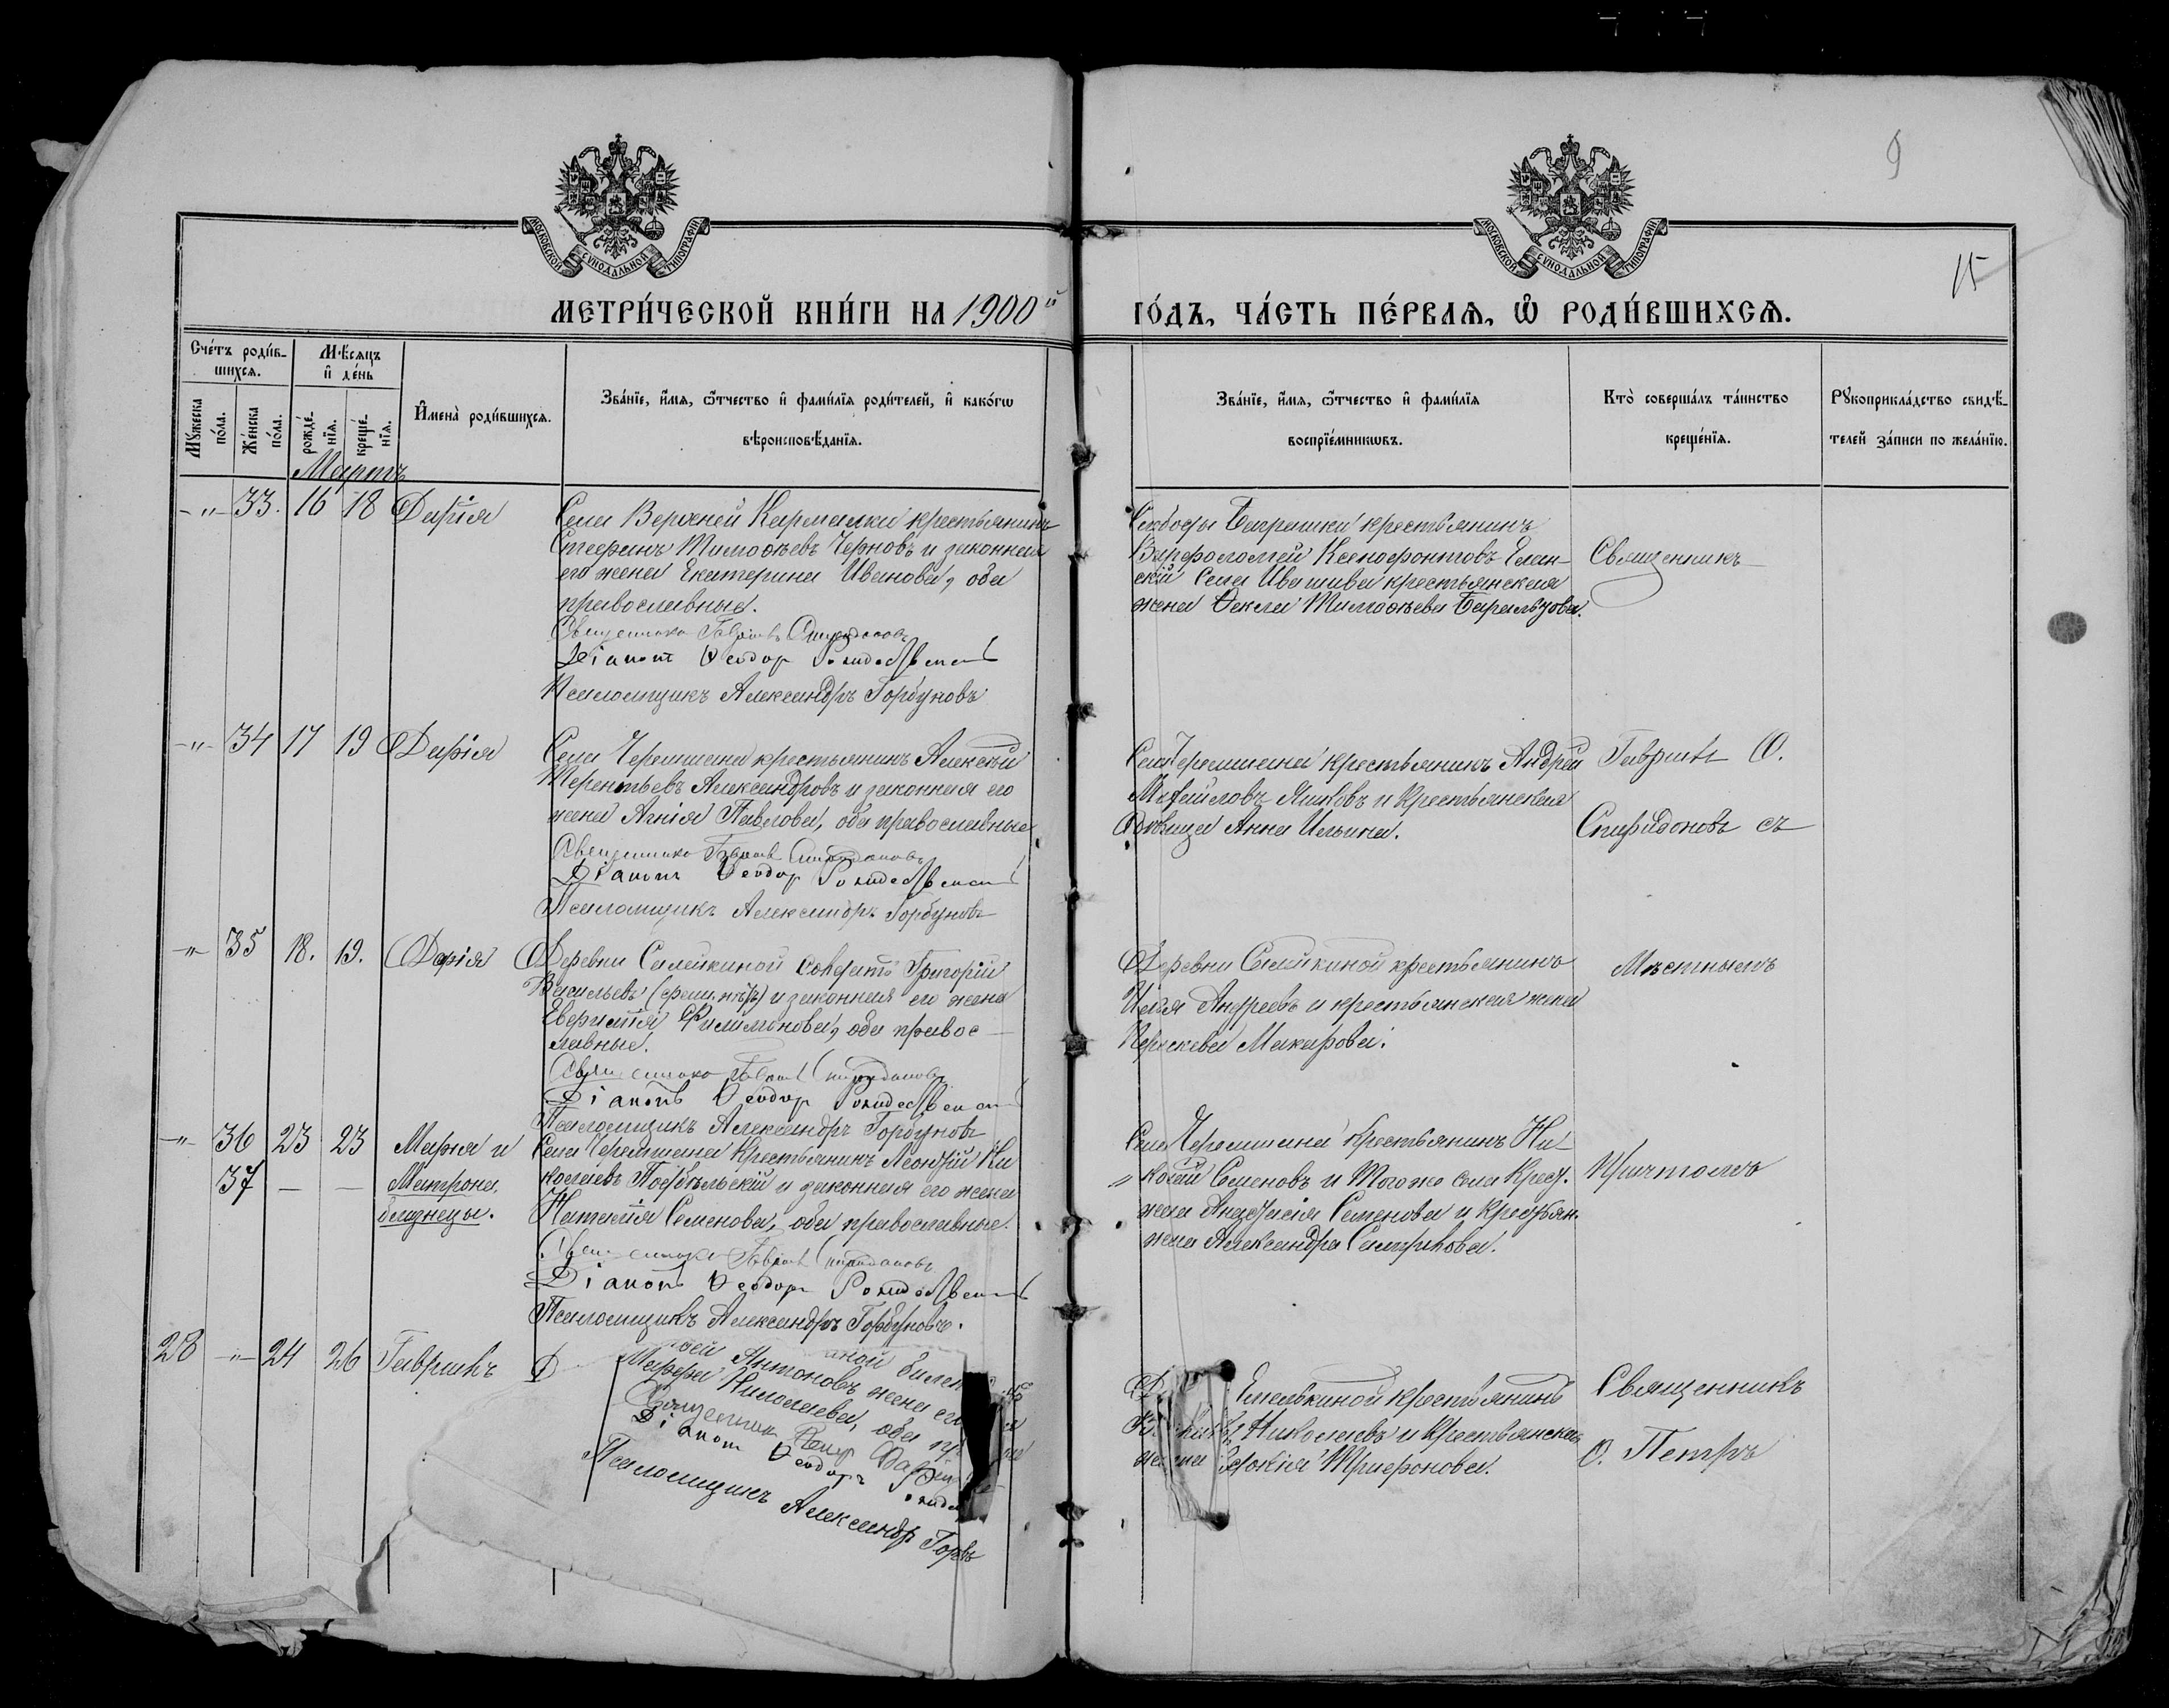 9
15
МОСКОВСКОЙ СѴНОДАЛЬНОЙ ТИПОГРАФІИ
МОСКОВСКОЙ СѴНОДАЛЬНОЙ ТИПОГРАФІИ
МЕТРИ́ЧЕСКОЙ КНИ́ГИ НА 1900й ГО́ДЪ, ЧА́СТЬ ПЕ́РВАѦ, Ѡ҆ РОДИ́ВШИХСѦ.
Сче́тъ роди́в-
шихсѧ.
Мѣ́сѧцъ
и҆ де́нь
Мꙋ́жеска
по́ла.
Же́нска
по́ла.
рожде́-
нїѧ.
креще́-
нїѧ.
И҆мена̀ роди́вшихсѧ.
Зва́нїе, и҆́мѧ, ѻ҆́тчество и҆ фамı́лїѧ роди́телей, и҆ како́гѡ
вѣроисповѣ́данїѧ.
Зва́нїе, и҆́мѧ, ѻ҆́тчество и҆ фамı́лїѧ
воспрїе́мникѡвъ.
Кто̀ соверша́лъ та́инство
креще́нїѧ.
Рꙋкоприкла́дство свидѣ́-
телей за́писи по жела́нїю.
Мартъ
-"- 33. 16 18 Дарія
Села Верхней Кармалки крестьянинъ
Стефанъ Тимоѳеевъ Черновъ и законная
его жена Екатерина Иванова, оба
православные.
Священникъ Гавріилъ Спиридоновъ
Діаконъ Ѳеодоръ Рождественскій
Псаломщикъ Александръ Горбуновъ
Слободы Баграшки крестьянинъ
Варфоломей Ксенофонтовъ Елан-
скій Села Ивашива крестьянская
жена Ѳекла Тимоѳеева
Священникъ
-"- 34 17 19 Дарія
Села Черемшана крестьянинъ Алексѣй
Терентьевъ Александровъ и законная его
жена Агнія Павлова, оба православные
Священникъ Гавріилъ Спиридоновъ
Діаконъ Ѳеодоръ Рождественскій
Псаломщикъ Александръ Горбуновъ
Села Черемшана крестьянинъ Андрей
Михайловъ Яшковъ и Крестьянская
дѣвица Анна Ильина.
Гавріилъ О.
Спиридоновъ съ
-"- 35 18. 19. Дарія
Деревни Салейкиной солдатъ Григорій
Васильевъ и законная его жена
Евфимія Филимонова, оба правос-
лавные.
Священникъ Гавріилъ Спиридоновъ
Діаконъ Ѳеодоръ Рождественскій
Псаломщикъ Александръ Горбуновъ
Деревни Салейкиной крестьянинъ
Илья Андреевъ и крестьянская жена
Параскева Макарова.
Мѣстнымъ
-"- 36 23 23 Марія и
37 — — Матрона,
близнецы.
Села Черемшана Крестьянинъ Леонтій Ни
колаевъ Подбѣльскій и законная его жена
Наталія Семенова, оба православные.
Священникъ Гавріилъ Спиридоновъ
Діаконъ Ѳеодоръ Рождественскій
Псаломщикъ Александръ Горбуновъ.
Села Черемшана Крестьянинъ Ни-
колай Семеновъ и того же села Крест.
жена Анастасія Семенова и Крестьян.
жена Александра
Причтомъ
28 -"- 24 26 Гавріилъ
Д
Антоновъ жена его
Марфа Николаева, оба пр
Священникъ Петръ
Діаконъ Ѳеодоръ
Псаломщикъ Александръ Горб
Емелькиной крестьянинъ
Николаевъ и Крестьянская
жена Евдокія Трифонова.
Священникъ
О. Петръ